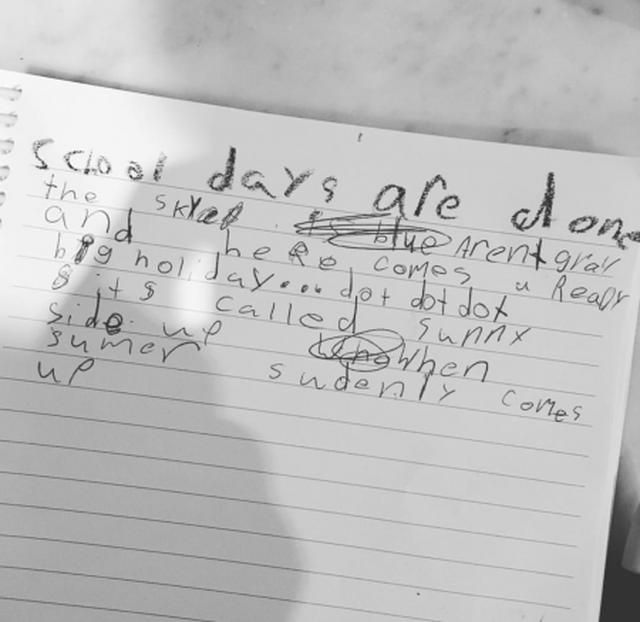 sclool days are done
the skyed blue Arent gray
and here comes u Ready
big holiday... dot dot dot
& its called sunny
side up When
sumer sudenly comes
up